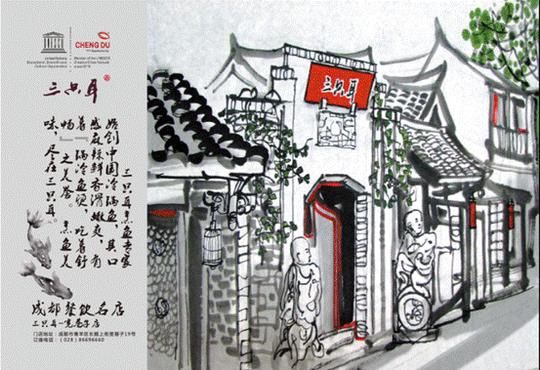 CHENG DU
United Nations
Educational, Scientific and
Cultural Organization
Member of the UNESCO
Creative Cities Network
since 2010
三只耳
三只耳煮鱼专家
始创中国冷锅鱼,其口
感麻辣鲜香滑嫩爽,有
着“一锅冷鱼烫,吃着舒
畅”之美誉。煮鱼美
味,尽在三只耳。
成都餐饮名店
三只耳-宽巷子店
门店地址:成都市青羊区长顺上街宽巷子19号
订座电话:(028)86696660
三只耳